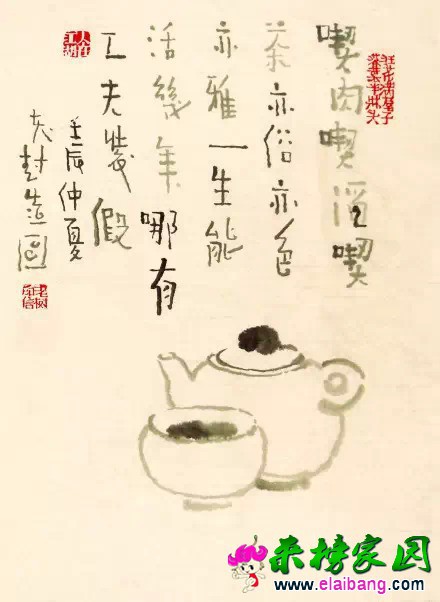 喫肉喫酒喫
茶亦俗亦色
亦雅一生能
活幾年哪有
工夫裝假
壬辰仲夏
老樹造圖
人在江湖
来榜家园
www.elaibang.com